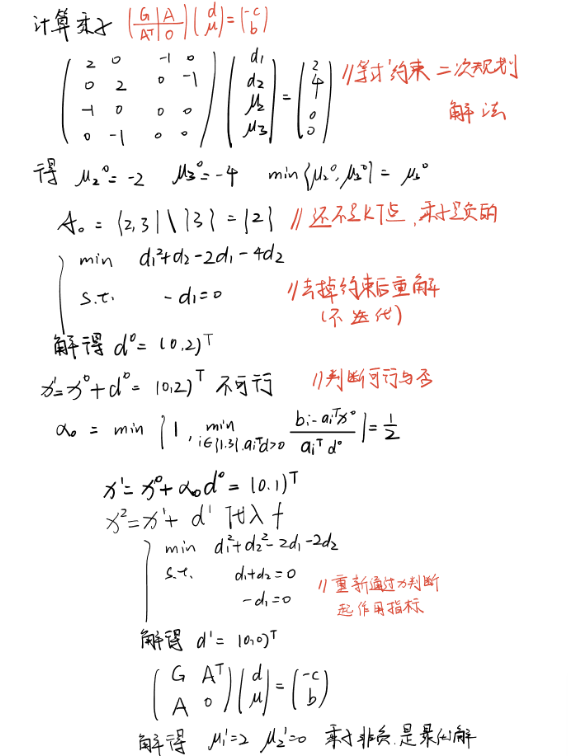 计算乘子 (G A / Aᵀ 0)(d / μ) = (-c / b)
(2 0 -1 0 / 0 2 0 -1 / -1 0 0 0 / 0 -1 0 0)(d₁ / d₂ / μ₂ / μ₃) = (2 / 4 / 0 / 0) //等式约束二次规划
解法
得 μ₂⁰=-2 μ₃⁰=-4 min{μ₂⁰, μ₃⁰}= μ₃⁰
A₀ = {2,3}\{3} = {2} //还不是KT点,乘子是负的
min d₁²+d₂-2d₁-4d₂
s.t. -d₁=0 //去掉约束后重解
(不迭代)
解得 d⁰= (0,2)ᵀ
x¹=x⁰+d⁰= (0,2)ᵀ 不可行 //判断可行与否
α₀ = min {1, min i∈{1,3}, aᵢᵀd>0 (bᵢ-aᵢᵀx⁰)/(aᵢᵀd⁰)} = 1/2
x¹=x⁰+α₀d⁰= (0,1)ᵀ
x²=x¹+d¹ 代入f
min d₁²+d₂²-2d₁-2d₂
s.t. d₁+d₂=0
-d₁=0 //重新通过x¹判断
起作用指标
解得 d¹= (0,0)ᵀ
(G Aᵀ / A 0)(d / μ) = (-c / b)
解得 μ₁¹=2 μ₂¹=0 乘子非负,是最优解